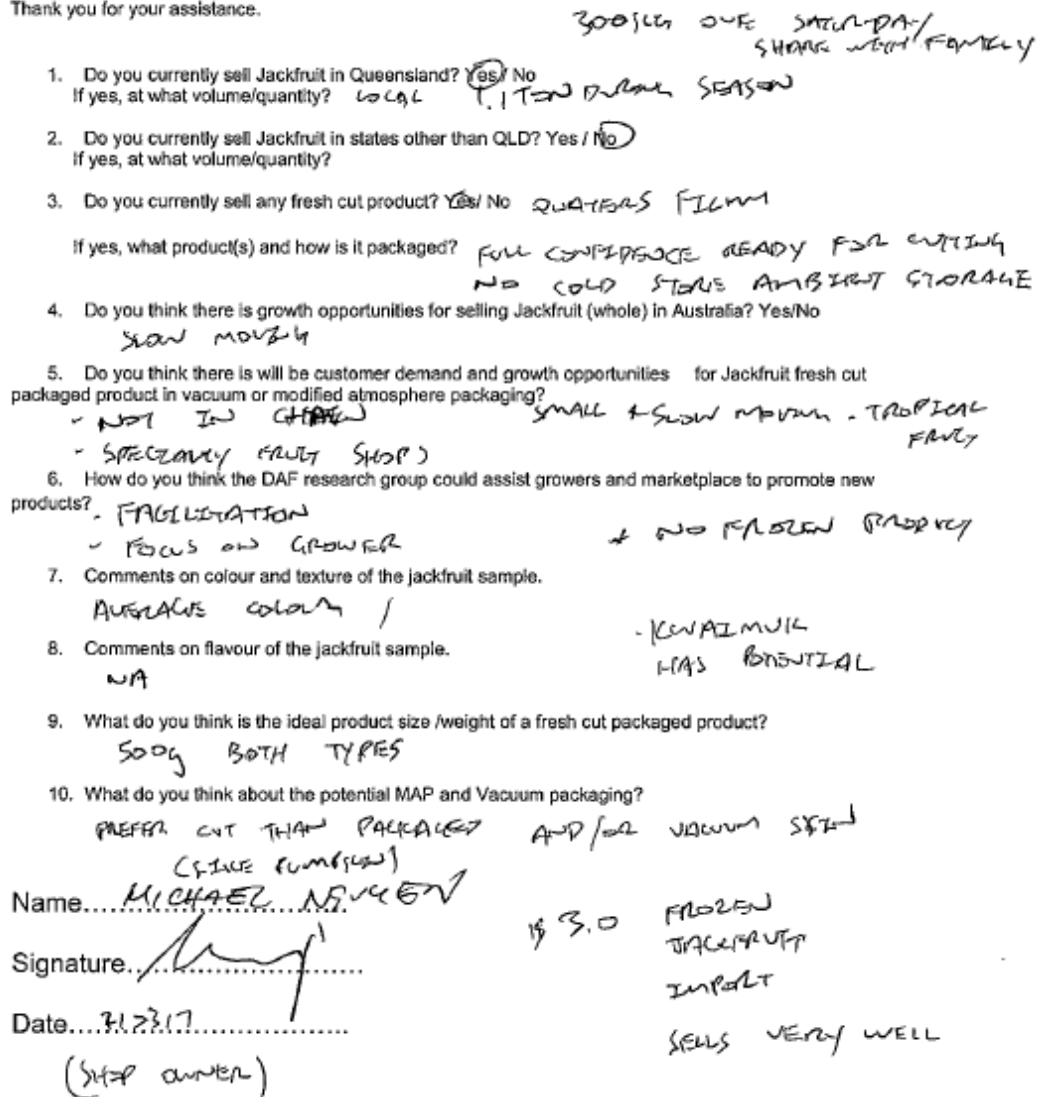 Thank you for your assistance.
300/KG OVE SATURDAY
SHARE WITH FAMILY
1. Do you currently sell Jackfruit in Queensland? Yes/ No
If yes, at what volume/quantity? LOCAL 1 TON DURING SEASON
2. Do you currently sell Jackfruit in states other than QLD? Yes / No
If yes, at what volume/quantity?
3. Do you currently sell any fresh cut product? Yes/ No QUATERS
If yes, what product(s) and how is it packaged? FULL CONFIDENCE READY FOR CUTTING
NO COLD STORE AMBIENT STORAGE
4. Do you think there is growth opportunities for selling Jackfruit (whole) in Australia? Yes/No
SLOW MOVING
5. Do you think there is will be customer demand and growth opportunities for Jackfruit fresh cut
packaged product in vacuum or modified atmosphere packaging?
- NOT IN SMALL + SLOW MOVING - TROPICAL
FRUIT
- SPECIALTY FRUIT SHOPS
6. How do you think the DAF research group could assist growers and marketplace to promote new
products?
- FACILITATION
- FOCUS ON GROWER
+ NO FROZEN PRODUCT
7. Comments on colour and texture of the jackfruit sample.
AVERAGE COLOUR /
8. Comments on flavour of the jackfruit sample.
NA
- KWAIMUK
HAS POTENTIAL
9. What do you think is the ideal product size /weight of a fresh cut packaged product?
500g BOTH TYPES
10. What do you think about the potential MAP and Vacuum packaging?
PREFER CUT THAN PACKAGED AND/OR VACUUM SKIN
(LIKE PUMPKIN)
Name.... MICHAEL
Signature..
Date....
(SHOP OWNER)
$3.0 FROZEN
JACKFRUIT
IMPORT
SELLS VERY WELL